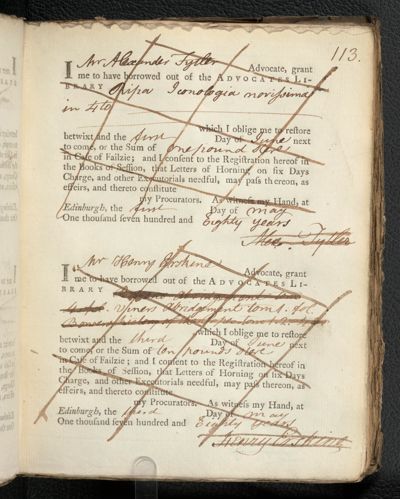 113.
I Mr Alexander Tytler Advocate, grant
me to have borrowed out of the ADVOCATES LI-
BRARY Ripa Iconologia novissima
in 4to
which I oblige me to restore
betwixt and the first Day of June next
to come, or the Sum of One pound Ster
in Case of Failzie; and I consent to the Registration hereof in
the Books of Session, that Letters of Horning on six Days
Charge, and other Executorials needful, may pass thereon, as
effeirs, and thereto constitute
my Procurators. As witness my Hand, at
Edinburgh, the first Day of May
One thousand seven hundred and Eighty years
Alexr. Tytler
I Mr Henry Erskine Advocate, grant
me to have borrowed out of the ADVOCATES LI-
BRARY
Viners Abridgment tom. 4.
which I oblige me to restore
betwixt and the third Day of June next
to come, or the Sum of ten pounds Ster
in Case of Failzie; and I consent to the Registration hereof in
the Books of Session, that Letters of Horning on six Days
Charge, and other Executorials needful, may pass thereon, as
effeirs, and thereto constitute
my Procurators. As witness my Hand, at
Edinburgh, the third Day of May
One thousand seven hundred and Eighty years
Henry Erskine